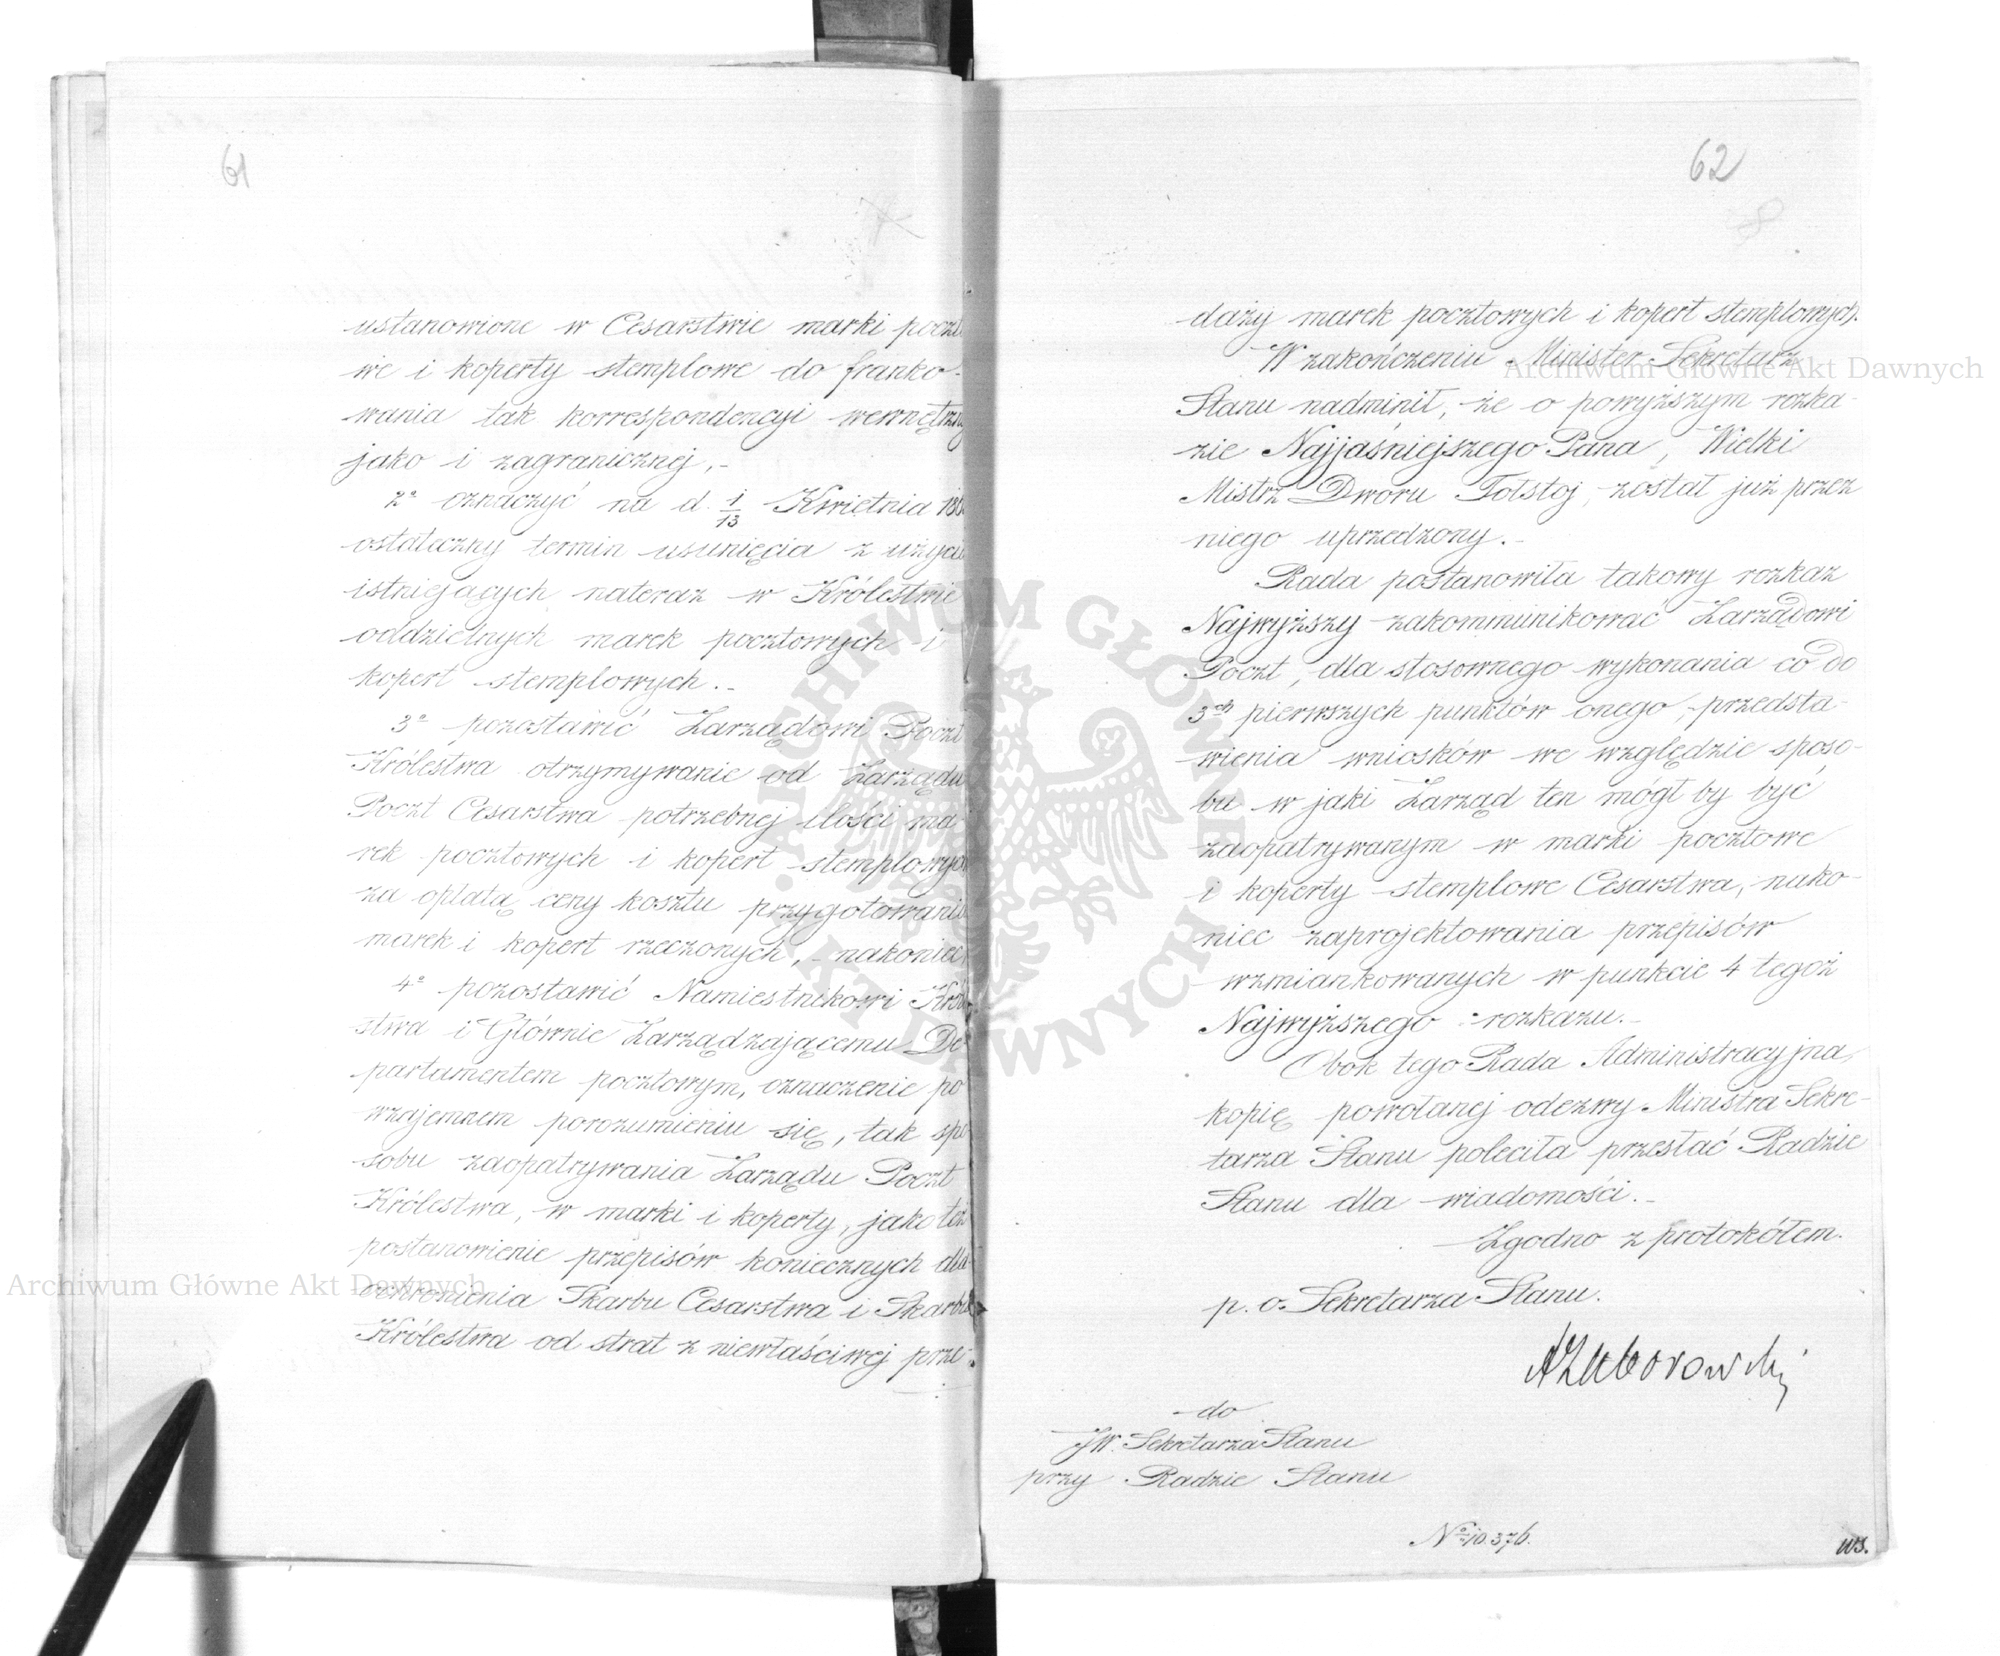 61
ustanowione w Cesarstwie marki poczto
we i koperty stemplowe do franko-
wania tak korrespondencyi wewnętrzn
jako i zagranicznej,-
2º oznaczyć na d. 1/13 Kwietnia 186
ostateczny termin usunięcia z użycia
istniejących nateraz w Królestwie
oddzielnych marek pocztowych i
kopert stemplowych.-
3º pozostawić Zarządowi Poczt
Królestwa otrzymywanie od Zarządu
Poczt Cesarstwa potrzebnej ilości ma
rek pocztowych i kopert stemplowych
za opłatą ceny kosztu przygotowania
marek i kopert rzeczonych,- nakoniec
4º pozostawić Namiestnikowi Król
stwa i Głównie Zarządzającemu De
partamentem pocztowym, oznaczenie po
wzajemnem porozumieniu się, tak spo
sobu zaopatrywania Zarządu Poczt
Królestwa, w marki i koperty, jako też
postanowienie przepisów koniecznych dla
ochronienia Skarbu Cesarstwa i Skarbu
Królestwa od strat z niewłaściwej prze-
62
daży marek pocztowych i kopert stemplowych.
W zakończeniu Minister Sekretarz
Stanu nadminił, że o powyższym rozka-
zie Najjaśniejszego Pana, Wielki
Mistrz Dworu Tołstoj, został już przez
niego uprzedzony.-
Rada postanowiła takowy rozkaz
Najwyższy zakommunikować Zarządowi
Poczt, dla stosownego wykonania co do
3ch pierwszych punktów onego, przedsta-
wienia wniosków we względzie sposo-
bu w jaki Zarząd ten mógł by być
zaopatrywanym w marki pocztowe
i koperty stemplowe Cesarstwa, nako-
niec zaprojektowania przepisów
wzmiankowanych w punkcie 4 tegoż
Najwyższego rozkazu.-
Obok tego Rada Administracyjna,
kopię powołanej odezwy Ministra Sekre-
tarza Stanu poleciła przesłać Radzie
Stanu dla wiadomości.-
Zgodno z protokółem.
p. o. Sekretarza Stanu.
AZaborowski
do
JW. Sekretarza Stanu
przy Radzie Stanu
Nº 10.376.
ws.
Archiwum Główne Akt Dawnych
Archiwum Główne Akt Dawnych
ARCHIWUM GŁÓWNE AKT DAWNYCH